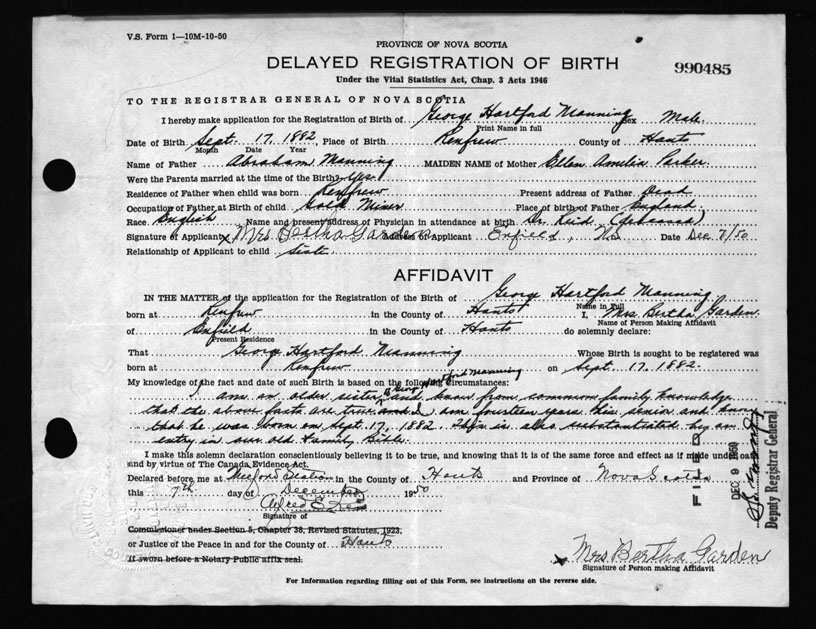 V.S. Form 1—10M-10-50
PROVINCE OF NOVA SCOTIA
DELAYED REGISTRATION OF BIRTH
990485
Under the Vital Statistics Act, Chap. 3 Acts 1946
TO THE REGISTRAR GENERAL OF NOVA SCOTIA
I hereby make application for the Registration of Birth of George Hartford Manning Sex Male
Print Name in full
Date of Birth Sept. 17, 1882, Place of Birth Renfrew County of Hants
Month Date Year
Name of Father Abraham Manning MAIDEN NAME of Mother Ellen Amelia Parker
Were the Parents married at the time of the Birth? Yes.
Residence of Father when child was born Renfrew Present address of Father Dead
Occupation of Father at Birth of child Gold Miner Place of birth of Father England
Race English Name and present address of Physician in attendance at birth Dr. Reid (deceased)
Signature of Applicant x Mrs Bertha Garden Address of Applicant Enfield, N.S Date Dec 7/50
Relationship of Applicant to child Sister
AFFIDAVIT
IN THE MATTER of the application for the Registration of the Birth of George Hartford Manning
Name in Full
born at Renfrew in the County of Hants I, Mrs. Bertha Garden
Name of Person Making Affidavit
of Enfield in the County of Hants do solemnly declare:
Present Residence
That George Hartford Manning Whose Birth is sought to be registered was
born at Renfrew on Sept. 17, 1882.
My knowledge of the fact and date of such Birth is based on the following circumstances:
I am an older sister of George Hartford Manning and know from common family knowledge
that the above facts are true and I am fourteen years his senior and know
that he was born on Sept. 17, 1882. This is also substantiated by an
entry in our old Family Bible.
I make this solemn declaration conscientiously believing it to be true, and knowing that it is of the same force and effect as if made under oath
and by virtue of The Canada Evidence Act.
Declared before me at Station in the County of Hants and Province of Nova Scotia
this 7th day of December 1950
Alfred E.
Signature of
Commissioner under Section 5, Chapter 38, Revised Statutes, 1923.
or Justice of the Peace in and for the County of Hants
If sworn before a Notary Public affix seal.
x Mrs Bertha Garden
Signature of Person making Affidavit
For Information regarding filling out of this Form, see instructions on the reverse side.
FILED
DEC 9 1950
Deputy Registrar General